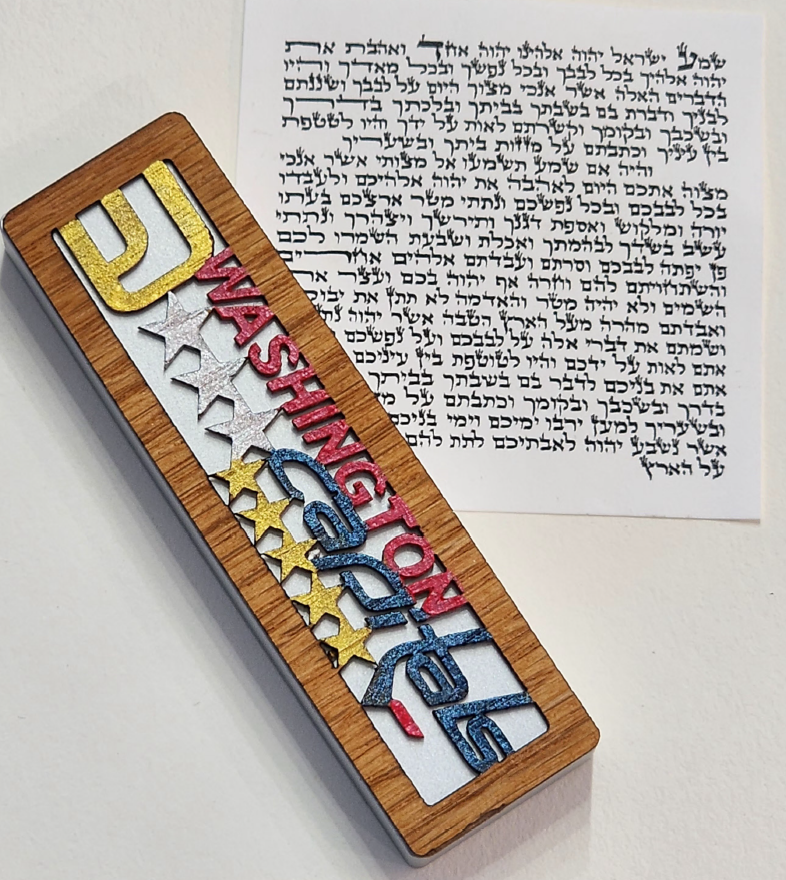 שמע ישראל יהוה אלהינו יהוה אחד ואהבת את
יהוה אלהיך בכל לבבך ובכל נפשך ובכל מאדך והיו
הדברים האלה אשר אנכי מצוך היום על לבבך ושננתם
לבניך ודברת בם בשבתך בביתך ובלכתך בדרך
ובשכבך ובקומך וקשרתם לאות על ידך והיו לטטפת
בין עיניך וכתבתם על מזזות ביתך ובשעריך
והיה אם שמע תשמעו אל מצותי אשר אנכי
מצוה אתכם היום לאהבה את יהוה אלהיכם ולעבדו
בכל לבבכם ובכל נפשכם ונתתי מטר ארצכם בעתו
יורה ומלקוש ואספת דגנך ותירשך ויצהרך ונתתי
עשב בשדך לבהמתך ואכלת ושבעת השמרו לכם
פן יפתה לבבכם וסרתם ועבדתם אלהים אחרים
והשתחויתם להם וחרה אף יהוה בכם ועצר את
השמים ולא יהיה מטר והאדמה לא תתן את יבול
ואבדתם מהרה מעל הארץ הטבה אשר יהוה
ושמתם את דברי אלה על לבבכם ועל נפשכם
אתם לאות על ידכם והיו לטוטפת בין עיניכם
אתם את בניכם לדבר בם בשבתך בביתך
בדרך ובשכבך ובקומך וכתבתם על
ובשעריך למען ירבו ימיכם וימי בניכם
אשר נשבע יהוה לאבתיכם לתת להם
על הארץ
ש
WASHINGTON
capitals